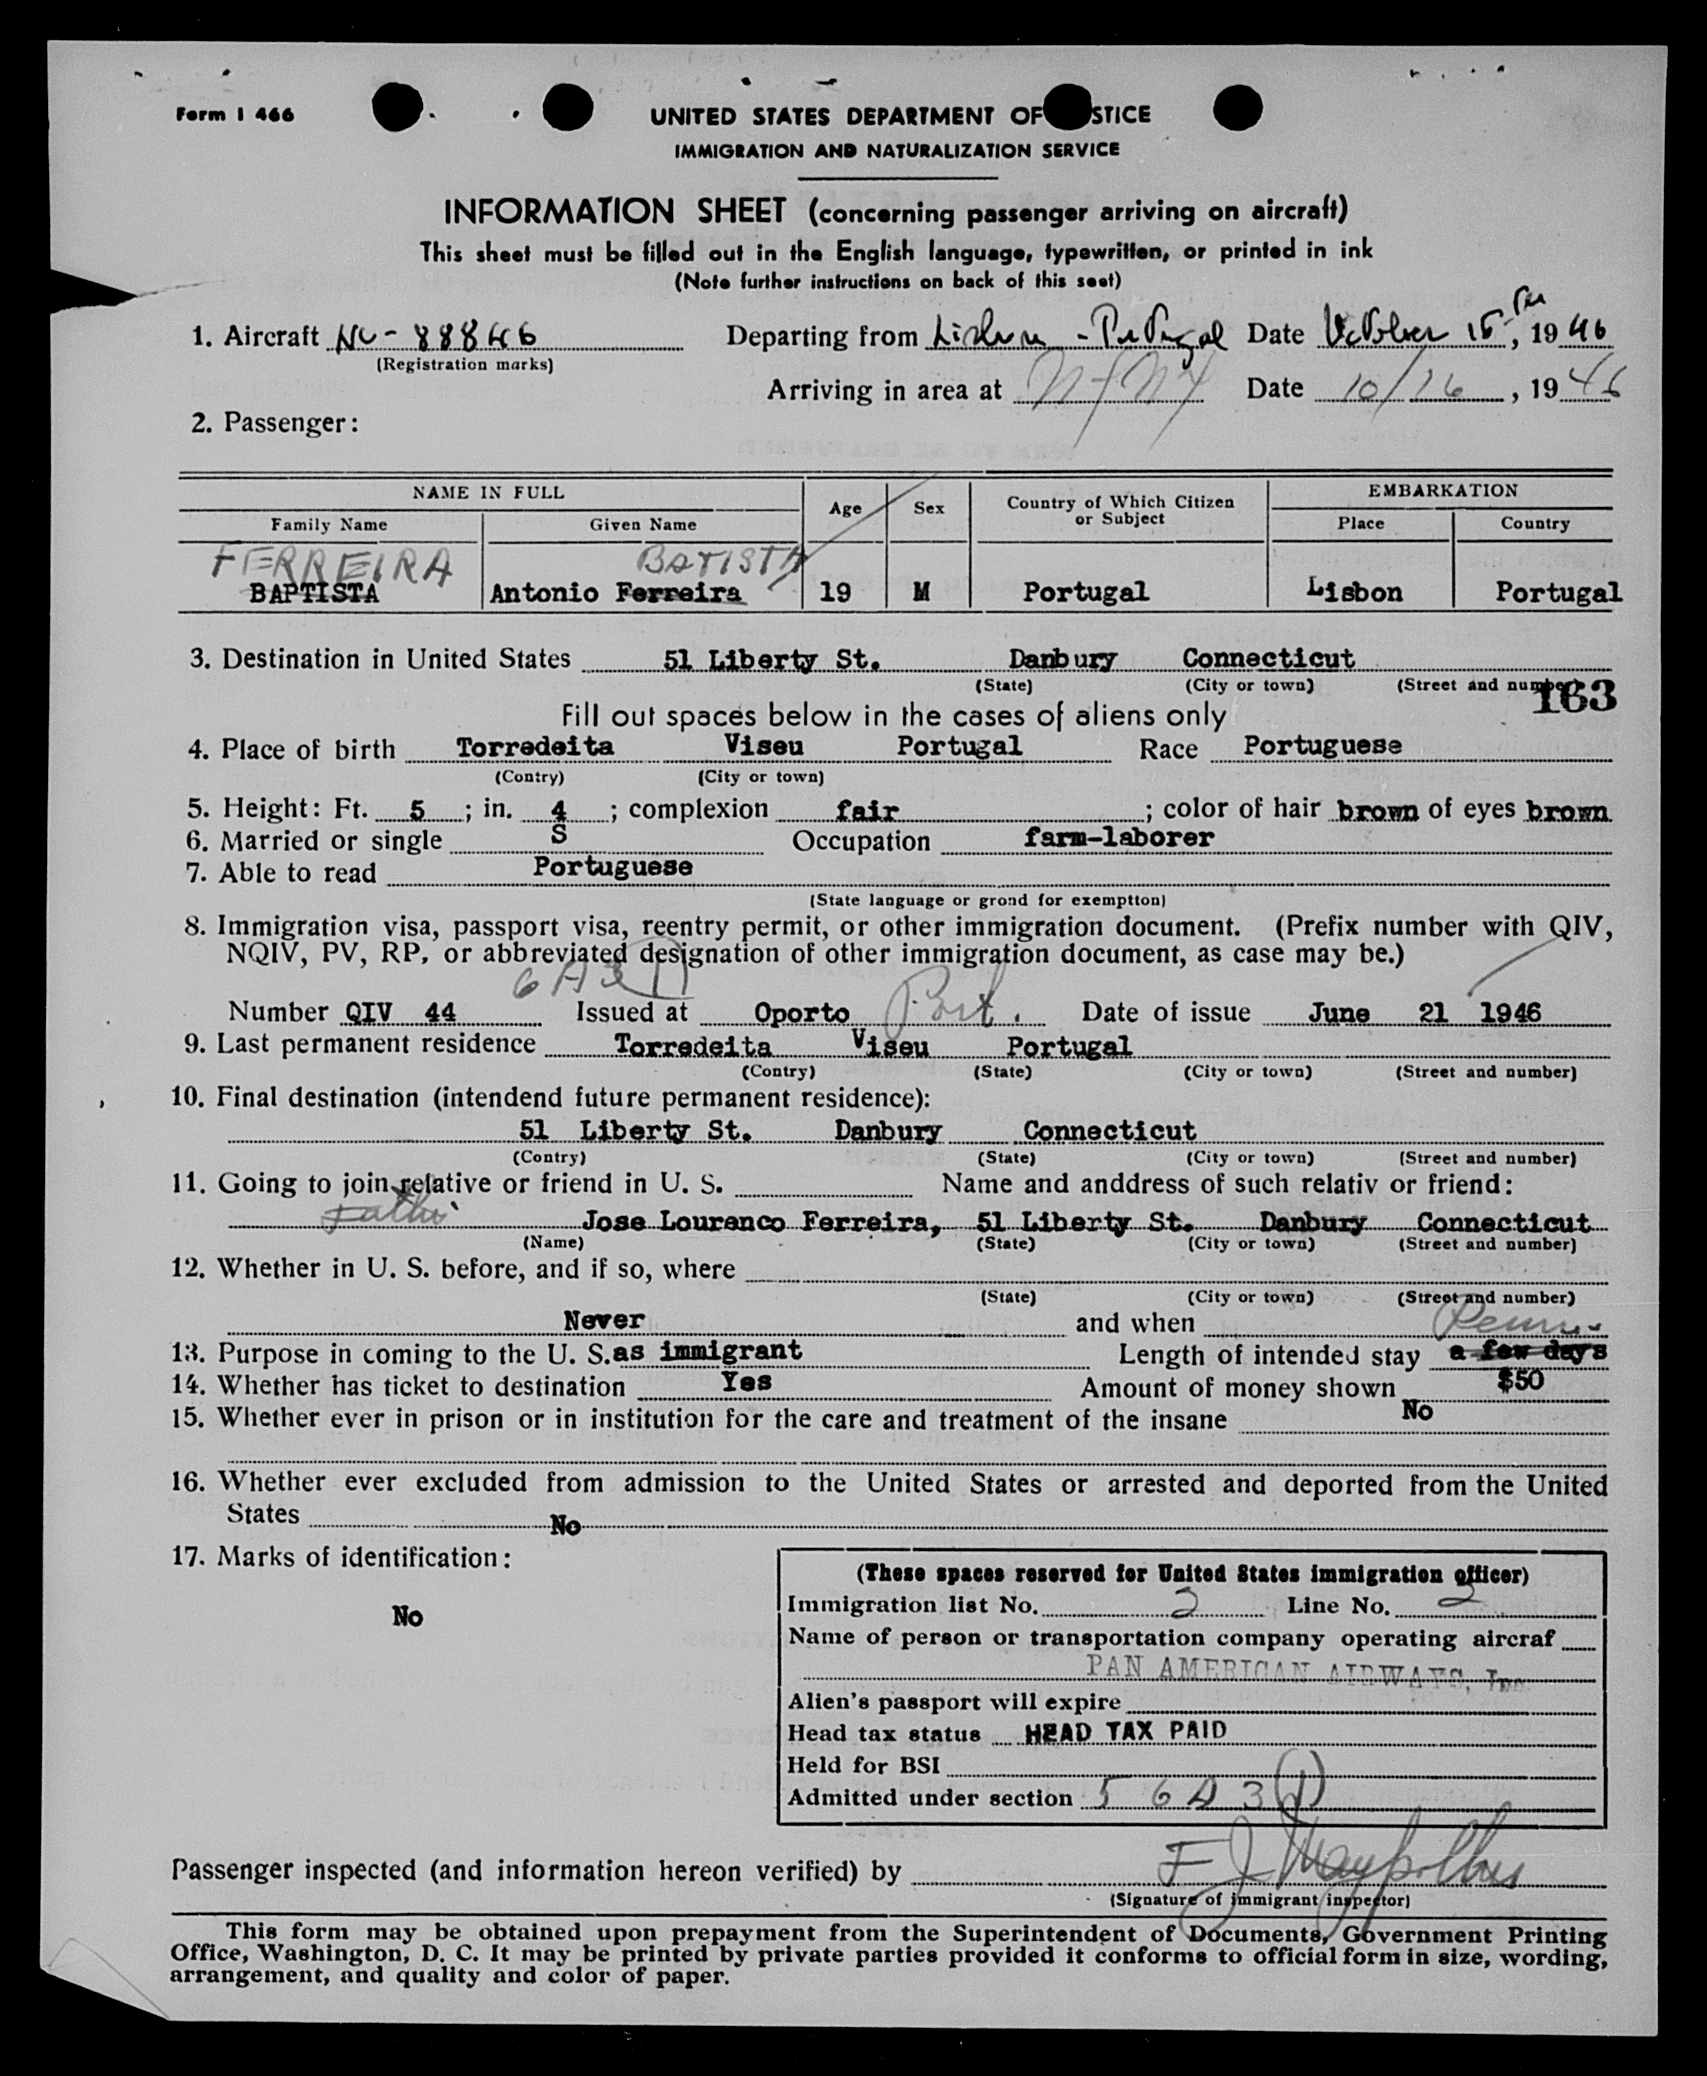 Form I 466
UNITED STATES DEPARTMENT OF STICE
IMMIGRATION AND NATURALIZATION SERVICE
INFORMATION SHEET (concerning passenger arriving on aircraft)
This sheet must be filled out in the English language, typewritten, or printed in ink
(Note further instructions on back of this seet)
1. Aircraft NC-88846 Departing from Lisbon - Portugal Date October 15th, 1946
(Registration marks)
Arriving in area at NYNY Date 10/16, 1946
2. Passenger:
NAME IN FULL Age Sex Country of Which Citizen or Subject EMBARKATION
Family Name Given Name Place Country
FERREIRA BATISTA
BAPTISTA Antonio Ferreira 19 M Portugal Lisbon Portugal
3. Destination in United States 51 Liberty St. Danbury Connecticut
(State) (City or town) (Street and number)
163
Fill out spaces below in the cases of aliens only
4. Place of birth Torredeita Viseu Portugal Race Portuguese
(Contry) (City or town)
5. Height: Ft. 5; in. 4; complexion fair; color of hair brown of eyes brown
6. Married or single S Occupation farm-laborer
7. Able to read Portuguese
(State language or grond for exemptton)
8. Immigration visa, passport visa, reentry permit, or other immigration document. (Prefix number with QIV,
NQIV, PV, RP, or abbreviated designation of other immigration document, as case may be.)
6A3
Number QIV 44 Issued at Oporto Port. Date of issue June 21 1946
9. Last permanent residence Torredeita Viseu Portugal
(Contry) (State) (City or town) (Street and number)
10. Final destination (intendend future permanent residence):
51 Liberty St. Danbury Connecticut
(Contry) (State) (City or town) (Street and number)
11. Going to join relative or friend in U. S. Name and anddress of such relativ or friend:
Father Jose Lourenco Ferreira, 51 Liberty St. Danbury Connecticut
(Name) (State) (City or town) (Street and number)
12. Whether in U. S. before, and if so, where
(State) (City or town) (Street and number)
Never and when
13. Purpose in coming to the U. S. as immigrant Length of intended stay a few days
14. Whether has ticket to destination Yes Amount of money shown $50
15. Whether ever in prison or in institution for the care and treatment of the insane No
16. Whether ever excluded from admission to the United States or arrested and deported from the United
States No
17. Marks of identification:
No
(These spaces reserved for United States immigration officer)
Immigration list No. 2 Line No. 2
Name of person or transportation company operating aircraf
PAN AMERICAN AIRWAYS, Inc.
Alien's passport will expire
Head tax status HEAD TAX PAID
Held for BSI
Admitted under section 5 6 A 3 (1)
Passenger inspected (and information hereon verified) by
(Signature of immigrant inspector)
This form may be obtained upon prepayment from the Superintendent of Documents, Government Printing
Office, Washington, D. C. It may be printed by private parties provided it conforms to official form in size, wording,
arrangement, and quality and color of paper.